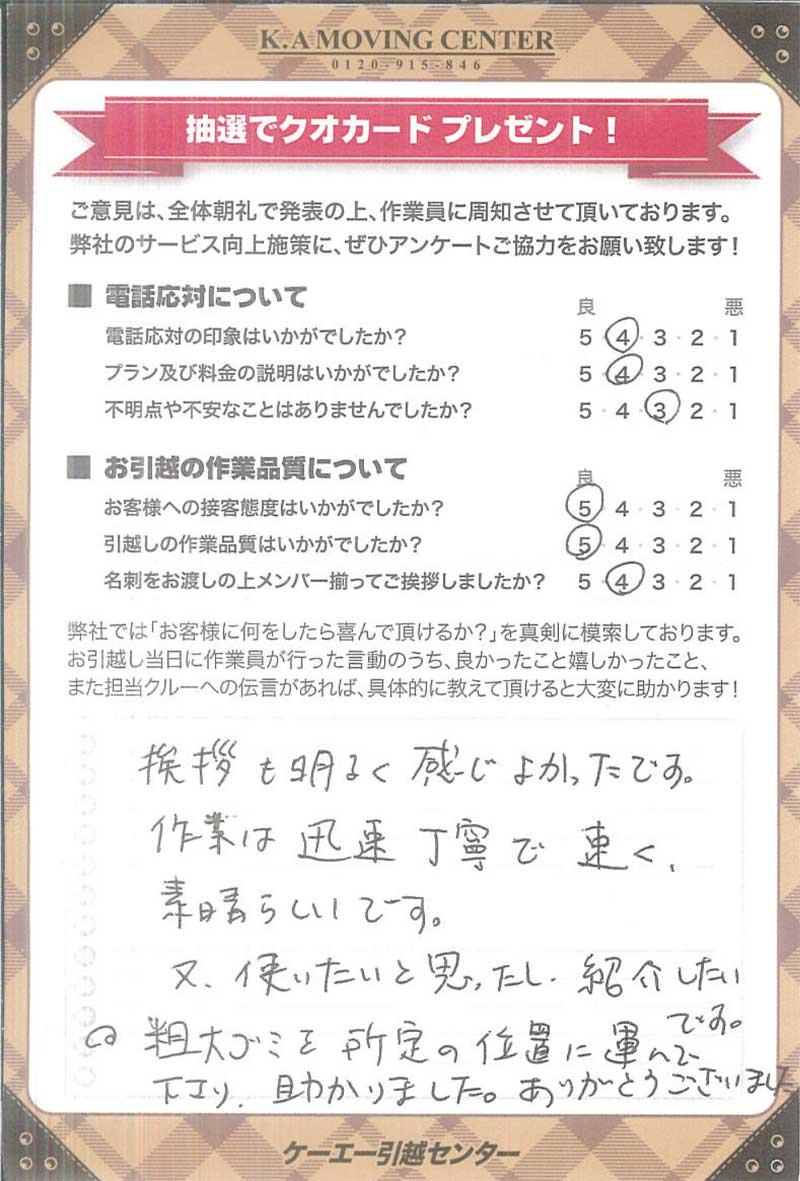 K.A MOVING CENTER
0120-915-846
抽選でクオカード プレゼント！
ご意見は、全体朝礼で発表の上、作業員に周知させて頂いております。
弊社のサービス向上施策に、ぜひアンケートご協力をお願い致します！
■ 電話応対について
良 悪
電話応対の印象はいかがでしたか？ 5・4・3・2・1
プラン及び料金の説明はいかがでしたか？ 5・4・3・2・1
不明点や不安なことはありませんでしたか？ 5・4・3・2・1
■ お引越の作業品質について
良 悪
お客様への接客態度はいかがでしたか？ 5・4・3・2・1
引越しの作業品質はいかがでしたか？ 5・4・3・2・1
名刺をお渡しの上メンバー揃ってご挨拶しましたか？ 5・4・3・2・1
弊社では「お客様に何をしたら喜んで頂けるか？」を真剣に模索しております。
お引越し当日に作業員が行った言動のうち、良かったこと嬉しかったこと、
また担当クルーへの伝言があれば、具体的に教えて頂けると大変に助かります！
挨拶も明るく感じよかったです。
作業は迅速丁寧で速く、
素晴らしいです。
又、使いたいと思ったし、紹介したい
です。
粗大ゴミを所定の位置に運んで
下さり、助かりました。ありがとうございました
ケーエー引越センター